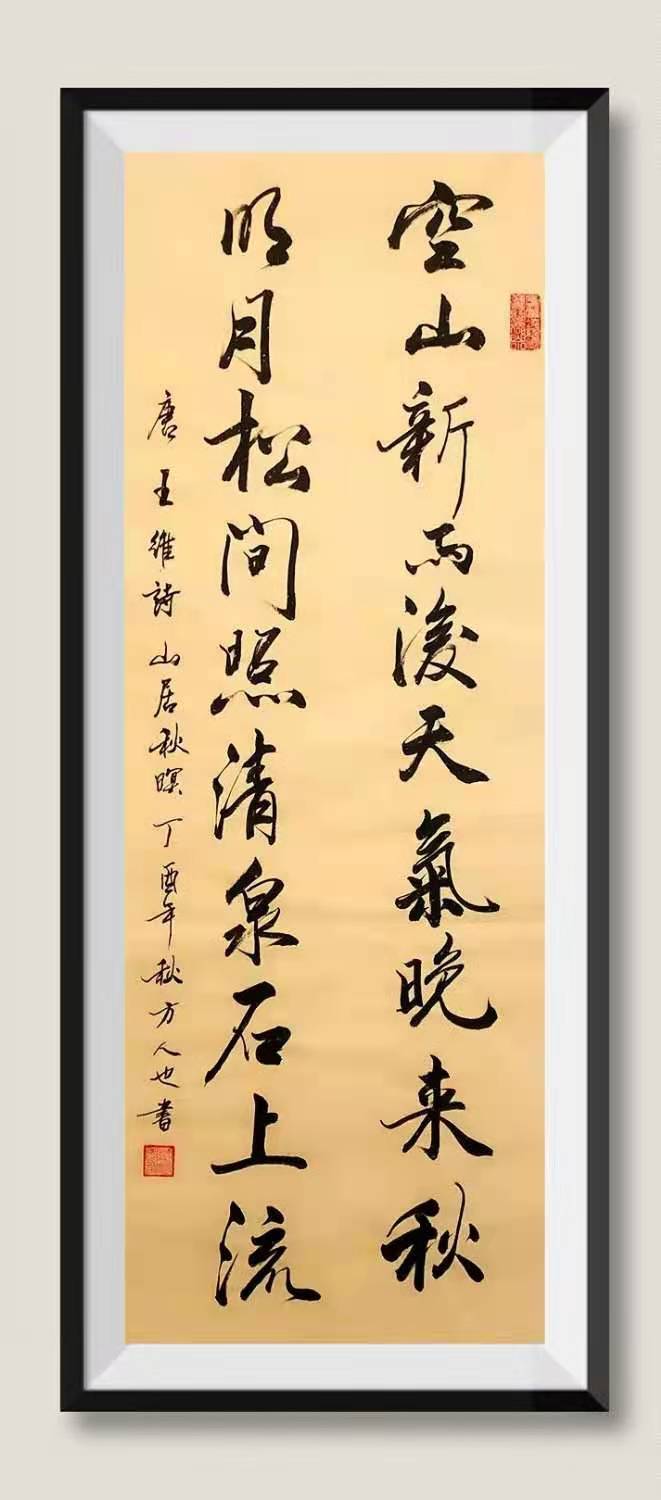 空山新雨後天氣晚来秋
明月松间照清泉石上流
唐王維詩山居秋暝丁酉年秋方人也書